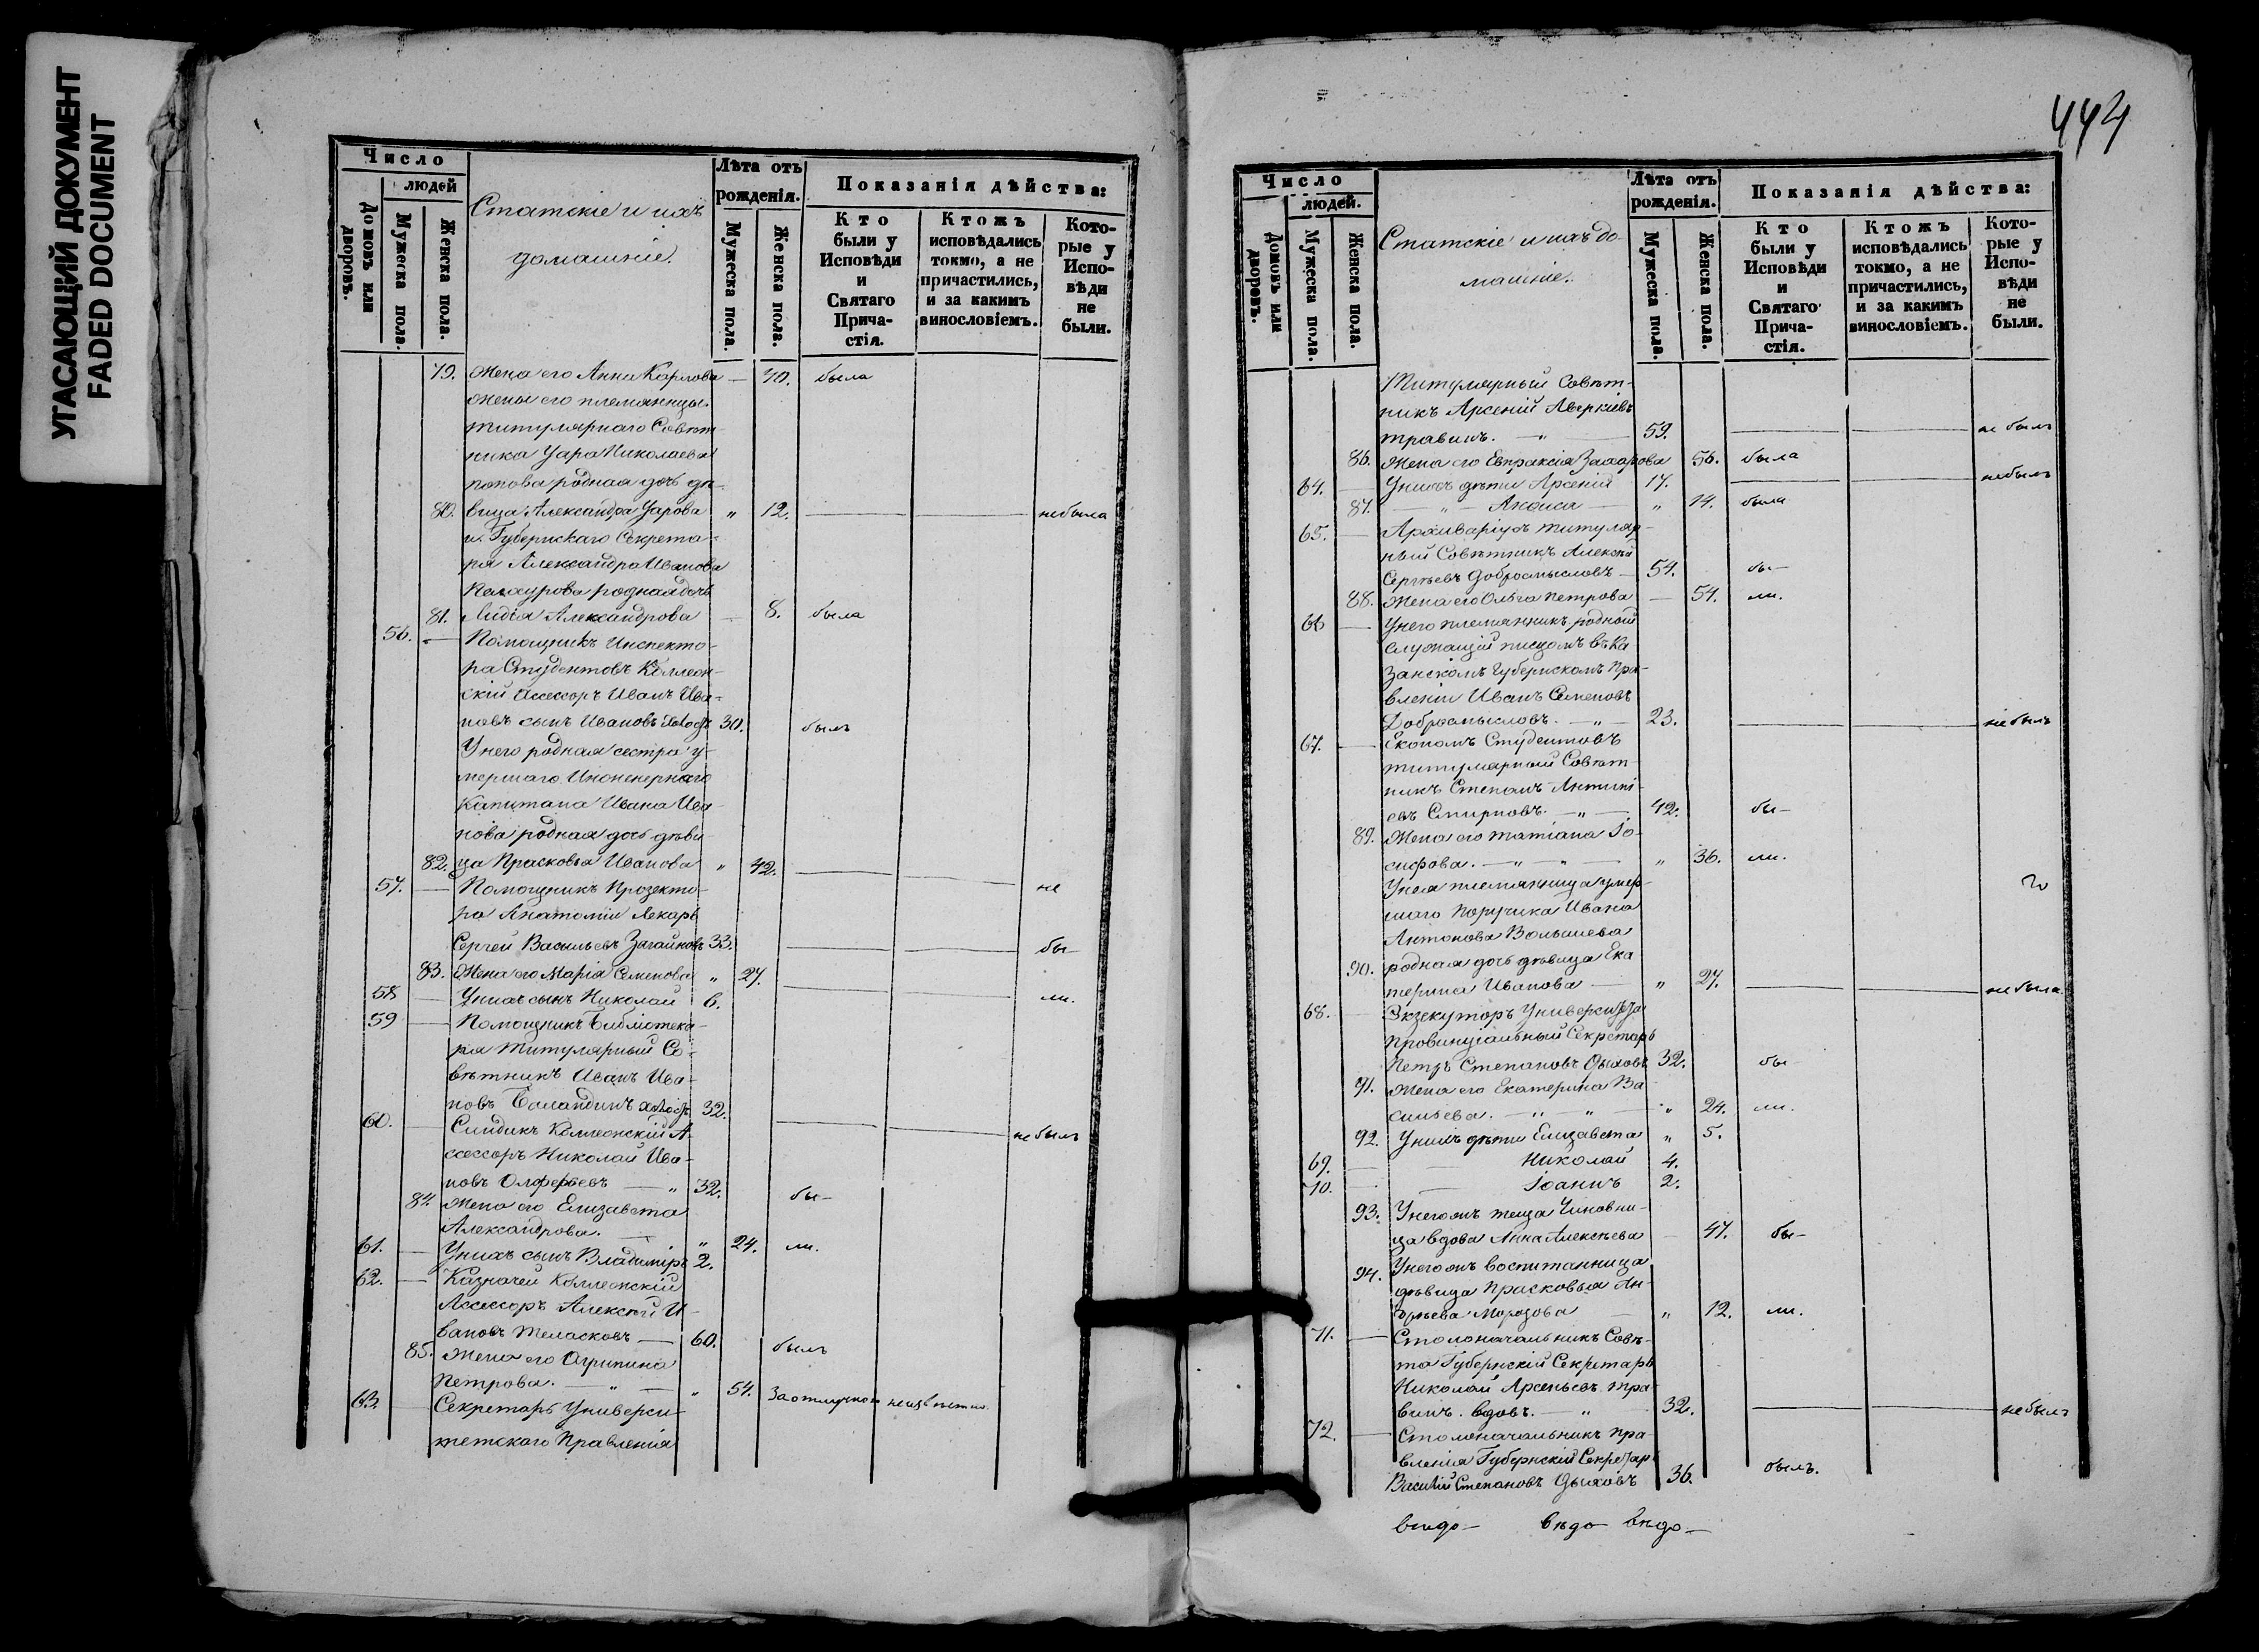 УГАСАЮЩИЙ ДОКУМЕНТ
FADED DOCUMENT
Число
людей
Домовъ или дворовъ.
Мужеска пола.
Женска пола.
Статскіе и ихъ
домашніе.
Лѣта отъ рожденія.
Мужеска пола.
Женска пола.
Показанія дѣйства:
Кто были у Исповѣди и Святаго Причастія.
Ктожъ исповѣдались токмо, а не причастились, и за какимъ винословіемъ.
Которые у Исповѣди не были.
79. Жена его Анна Карлова — 40. была
Жены его племянницы
титулярнаго Совѣт-
ника Уара Николаева
попова родная дочь дѣ-
80. вица Александра Уарова " 12. не была
и Губернскаго Секрета-
ря Александра Иванова
родная дочь
81. Лидія Александрова — 8. была
56. — Помощникъ Инспекто-
ра Студентовъ Коллеж-
скій Ассессоръ Иванъ Ива-
новъ сынъ Ивановъ холостъ 30. былъ
У него родная сестра у-
мершаго Инженернаго
Капитана Ивана Ива-
нова родная дочь дѣви
82. ца Прасковья Иванова " 42. не
57. — Помощникъ Прозекто-
ра Анатоміи Лекарь
Сергей Васильевъ Загайновъ 33. бы-
83. Жена его Марія Семенова " 27.
58 — У нихъ сынъ Николай 6. ли.
59 — Помощникъ Библіотека-
ря Титулярный Со-
вѣтникъ Иванъ Ива-
новъ Баландинъ холостъ 32.
60. — Синдикъ Коллежскій А- не былъ
ссессоръ Николай Ива-
новъ Олферьевъ — " 32. бы-
84. Жена его Елизавета
Александрова. — " 24. ли.
61. — У нихъ сынъ Владиміръ 2.
62. — Казначей Коллежскій
Ассессоръ Алексѣй И-
вановъ — 60. былъ
85. Жена его Агрипина
Петрова. — " — " 54. За отлучкою
63. — Секретарь Универси-
тетскаго Правленія
444
Число
людей.
Домовъ или дворовъ.
Мужеска пола.
Женска пола.
Статскіе и ихъ до-
машніе.
Лѣта отъ рожденія.
Мужеска пола.
Женска пола.
Показанія дѣйства:
Кто были у Исповѣди и Святаго Причастія.
Ктожъ исповѣдались токмо, а не причастились, и за какимъ винословіемъ.
Которые у Исповѣди не были.
Титулярный Совѣт-
никъ Арсеній Аверкіевъ
Травинъ. — " — 59. не былъ
86. Жена его Евпраксія Захарова 56. была
64. — У нихъ дѣти Арсеній 17. не былъ
87. — " — Анфиса — " 14. была
65. — Архиваріусъ титуляр-
ный Совѣтникъ Алексѣй
Сергѣевъ Добросмысловъ — 54. бы-
88. Жена его Ольга Петрова — 54. ли.
66 — У него племянникъ родной
служащій писцомъ въ Ка
занскомъ Губернскомъ Пра-
вленіи Иванъ Семеновъ
Добросмысловъ. — " — 23. не былъ
67. — Экономъ Студентовъ
титулярный Совѣт-
никъ Степанъ Антипі-
евъ Смирновъ. — " — 42. бы-
89. Жена его Татіана Іо-
сифова. — " — " — " 36. ли.
У нея племянница умер-
шаго Поручика Ивана
Антонова
90. родная дочь дѣвица Ека
терина Иванова — " 27. не была
68. — Экзекуторъ Университета
Провинціальный Секретарь
Петръ Степановъ Дьяковъ 32. бы-
91. Жена его Екатерина Ва
сильева. — " — " — " 24. ли.
92. У нихъ дѣти Елизавета " 5.
69. — Николай 4.
70. — Іоаннъ 2.
93. У него жъ теща Чиновни-
ца вдова Анна Алексѣева — 47. бы-
94. У него жъ воспитанница
дѣвица Прасковья Ан-
дрѣева Морозова — " 12. ли.
71. — Столоначальникъ Совѣ-
та Губернскій Секретарь
Николай Арсеньевъ Тра-
винъ. вдовъ. — " 32. не былъ
72. — Столоначальникъ Пра-
вленія Губернскій Секретарь
Василій Степановъ Дьяковъ 36. былъ.